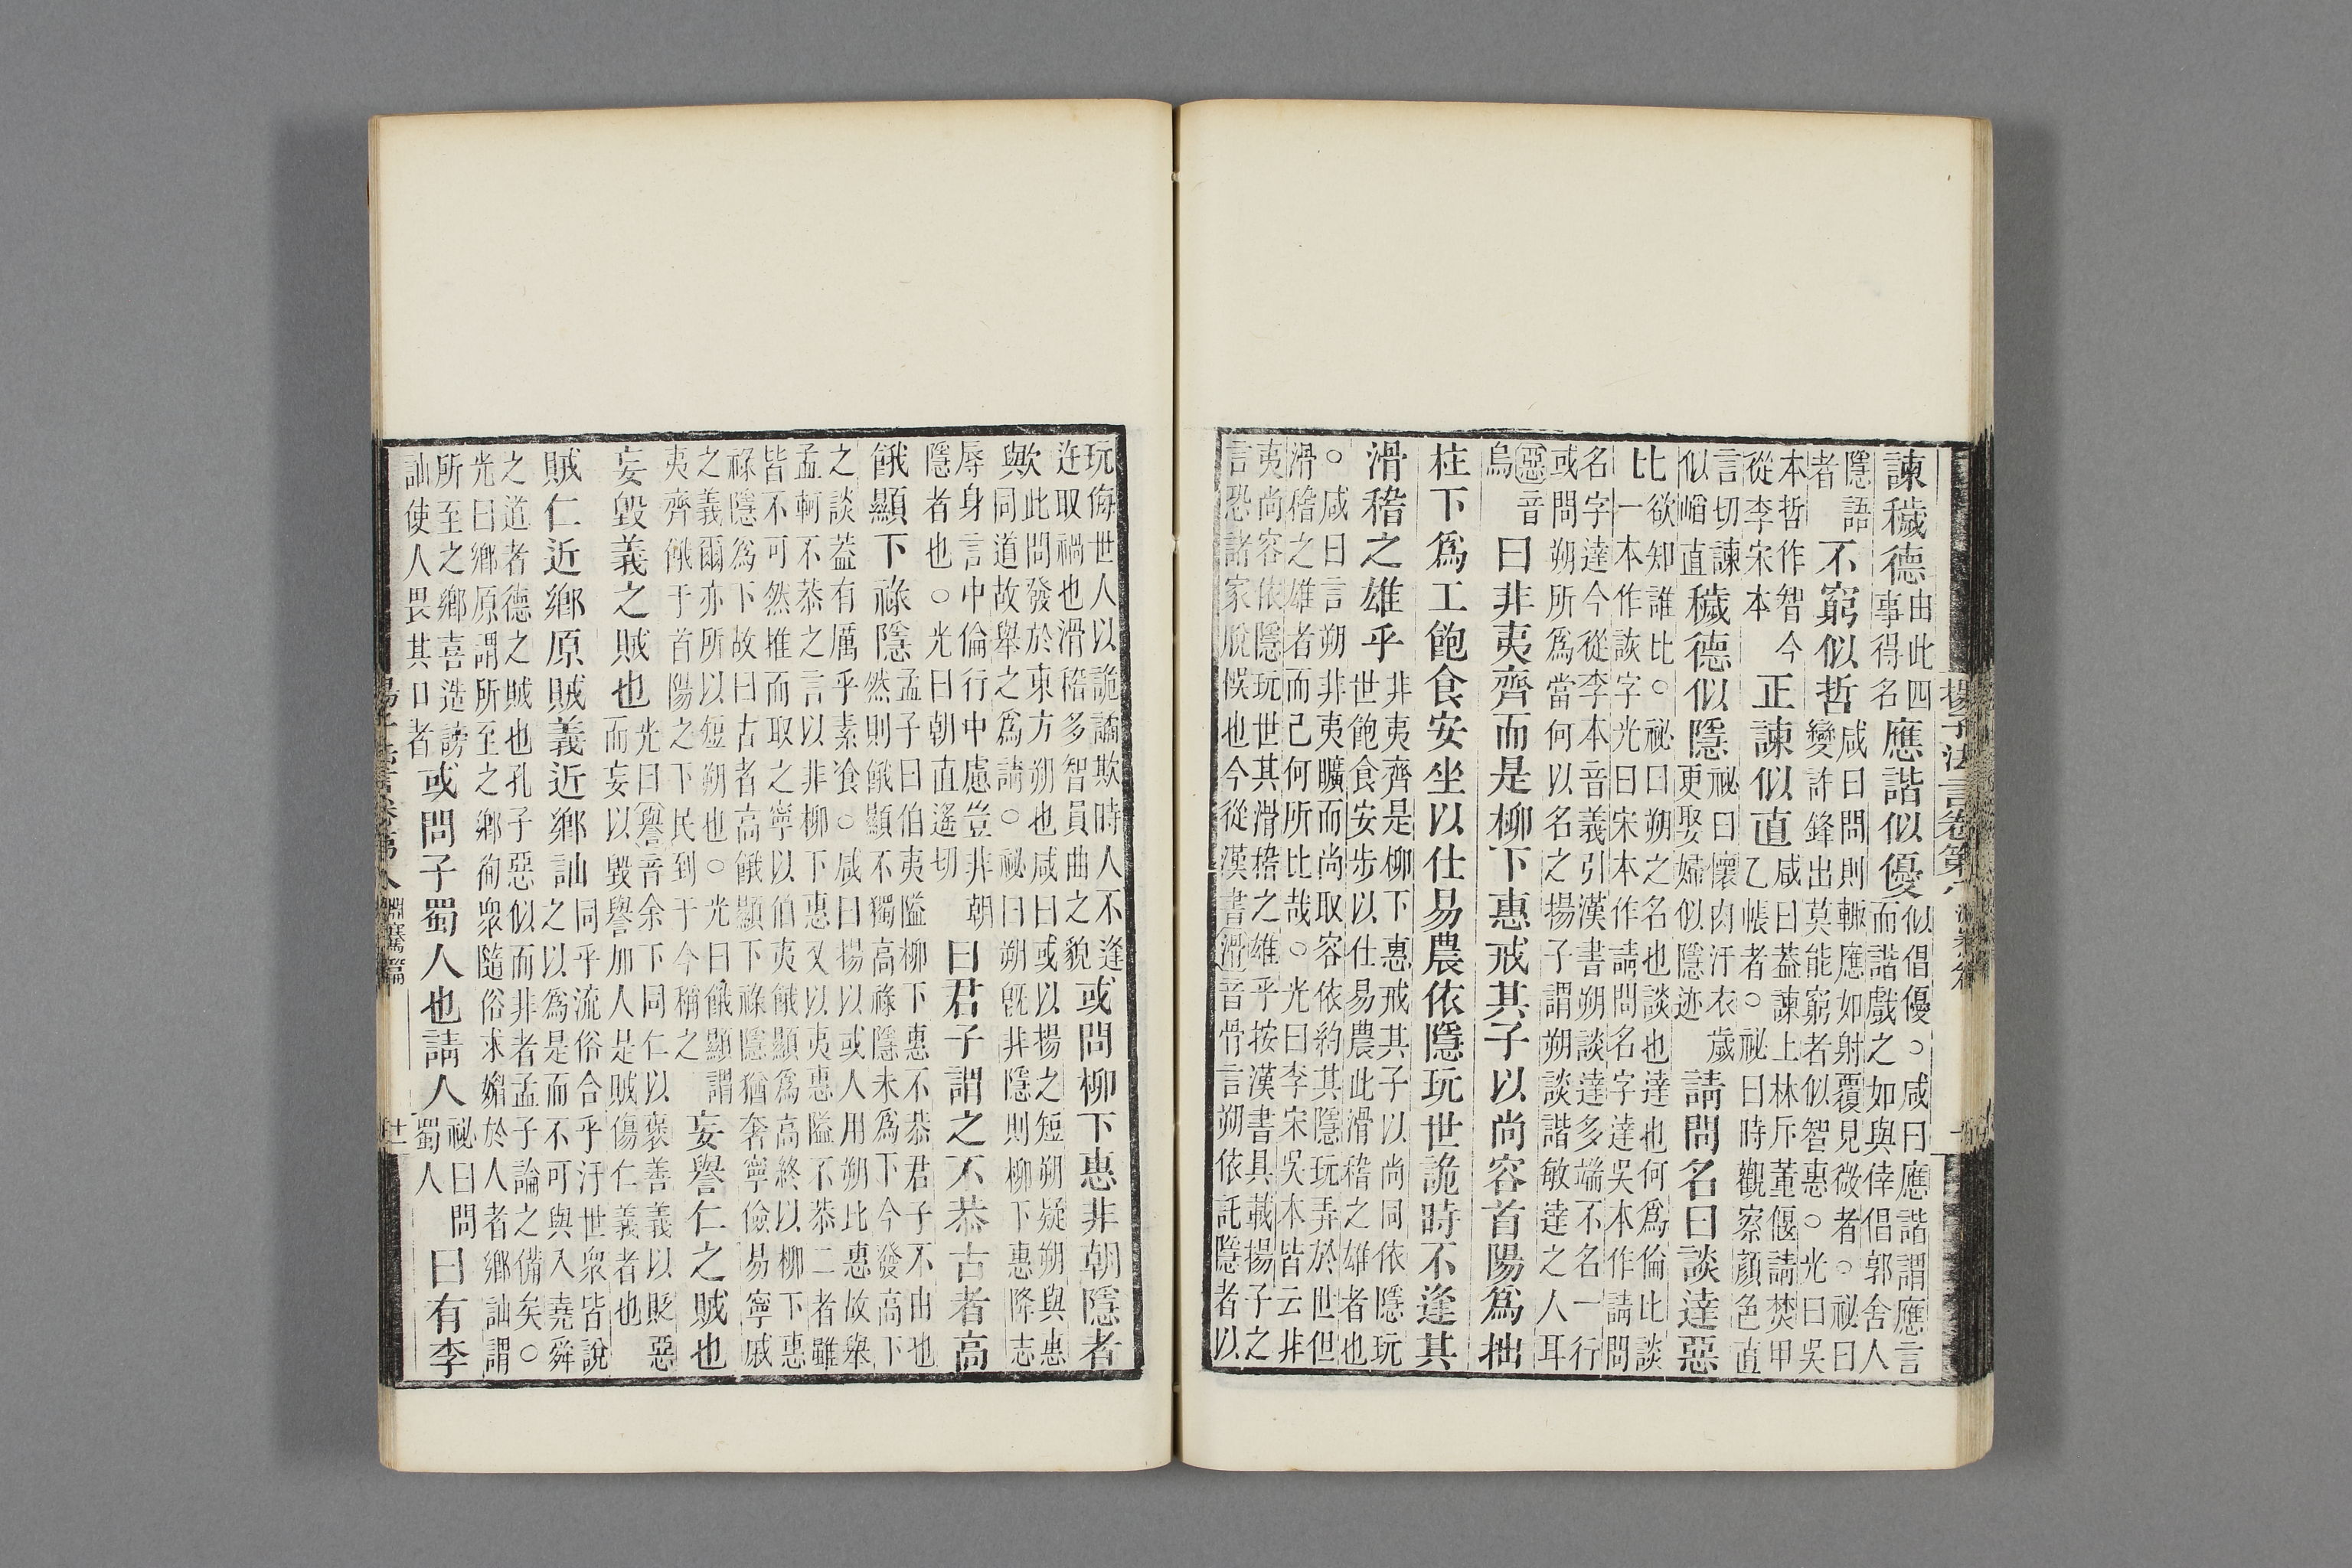 揚子法言卷第八
諫穢德由此四事得名應諧似優似倡優○咸曰應諧謂應言而諧戲之如與倖倡郭舍人
隱語者不窮似哲咸曰問則輙應如射覆見微者○祕曰變詐鋒出莫能窮者似智惠○光曰吳
本哲作智今從李宋本正諫似直咸曰葢諫上林斥董偃請焚甲乙帳者○祕曰時觀察顔色直
言切諫似直穢德似隱祕曰懷肉汙衣歲更娶婦似隱迹請問名曰談達惡
比欲知誰比○祕曰朔之名也談也達也何爲倫比談一本作詼字光曰宋本作請問名字達吳本作請問
名字達今從李本音義引漢書朔談達多端不名一行或問朔所爲當何以名之揚子謂朔談諧敏達之人耳
惡音烏曰非夷齊而是柳下惠戒其子以尚容首陽爲拙
柱下爲工飽食安坐以仕易農依隱玩世詭時不逢其
滑稽之雄乎非夷齊是柳下惠戒其子以尚同依隱玩世飽食安步以仕易農此滑稽之雄者也
○咸曰言朔非夷曠而尚取容依約其隱玩弄於世但滑稽之雄者而己何所比哉○光曰李宋吳本皆云非
夷尚容依隱玩世其滑稽之雄乎按漢書具載揚子之言恐諸家脫悮也今從漢書滑音骨言朔依託隱者以
玩侮世人以詭譎欺時人不逢迕取禍也滑稽多智員曲之貌或問柳下惠非朝隱者
歟此問發於東方朔也咸曰或以揚之短朔疑朔與惠同道故舉之爲請○祕曰朔旣非隱則柳下惠降志
辱身言中倫行中慮豈非朝隱者也○光曰朝直遙切曰君子謂之不恭古者高
餓顯下祿隱孟子曰伯夷隘柳下惠不恭君子不由也然則餓顯不獨高祿隱未爲下今發高下
之談葢有厲乎素飡○咸曰揚以或人用朔比惠故舉孟軻不恭之言以非柳下惠又以夷惠隘不恭二者雖
皆不可然推而取之寧以伯夷餓顯爲高終以柳下惠祿隱爲下故曰古者高餓顯下祿隱猶奢寧儉易寧戚
之義爾亦所以短朔也○光曰餓顯謂夷齊餓于首陽之下民到于今稱之妄譽仁之賊也
妄毀義之賊也光曰譽音余下同仁以褒善義以貶惡而妄以毀譽加人是賊傷仁義者也
賊仁近鄉原賊義近鄉訕同乎流俗合乎汙世衆皆說之以爲是而不可與入堯舜
之道者德之賊也孔子惡似而非者孟子論之備矣○光曰鄉原謂所至之鄉徇衆隨俗求媚於人者鄉訕謂
所至之鄉喜造謗訕使人畏其口者或問子蜀人也請人祕曰問蜀人曰有李